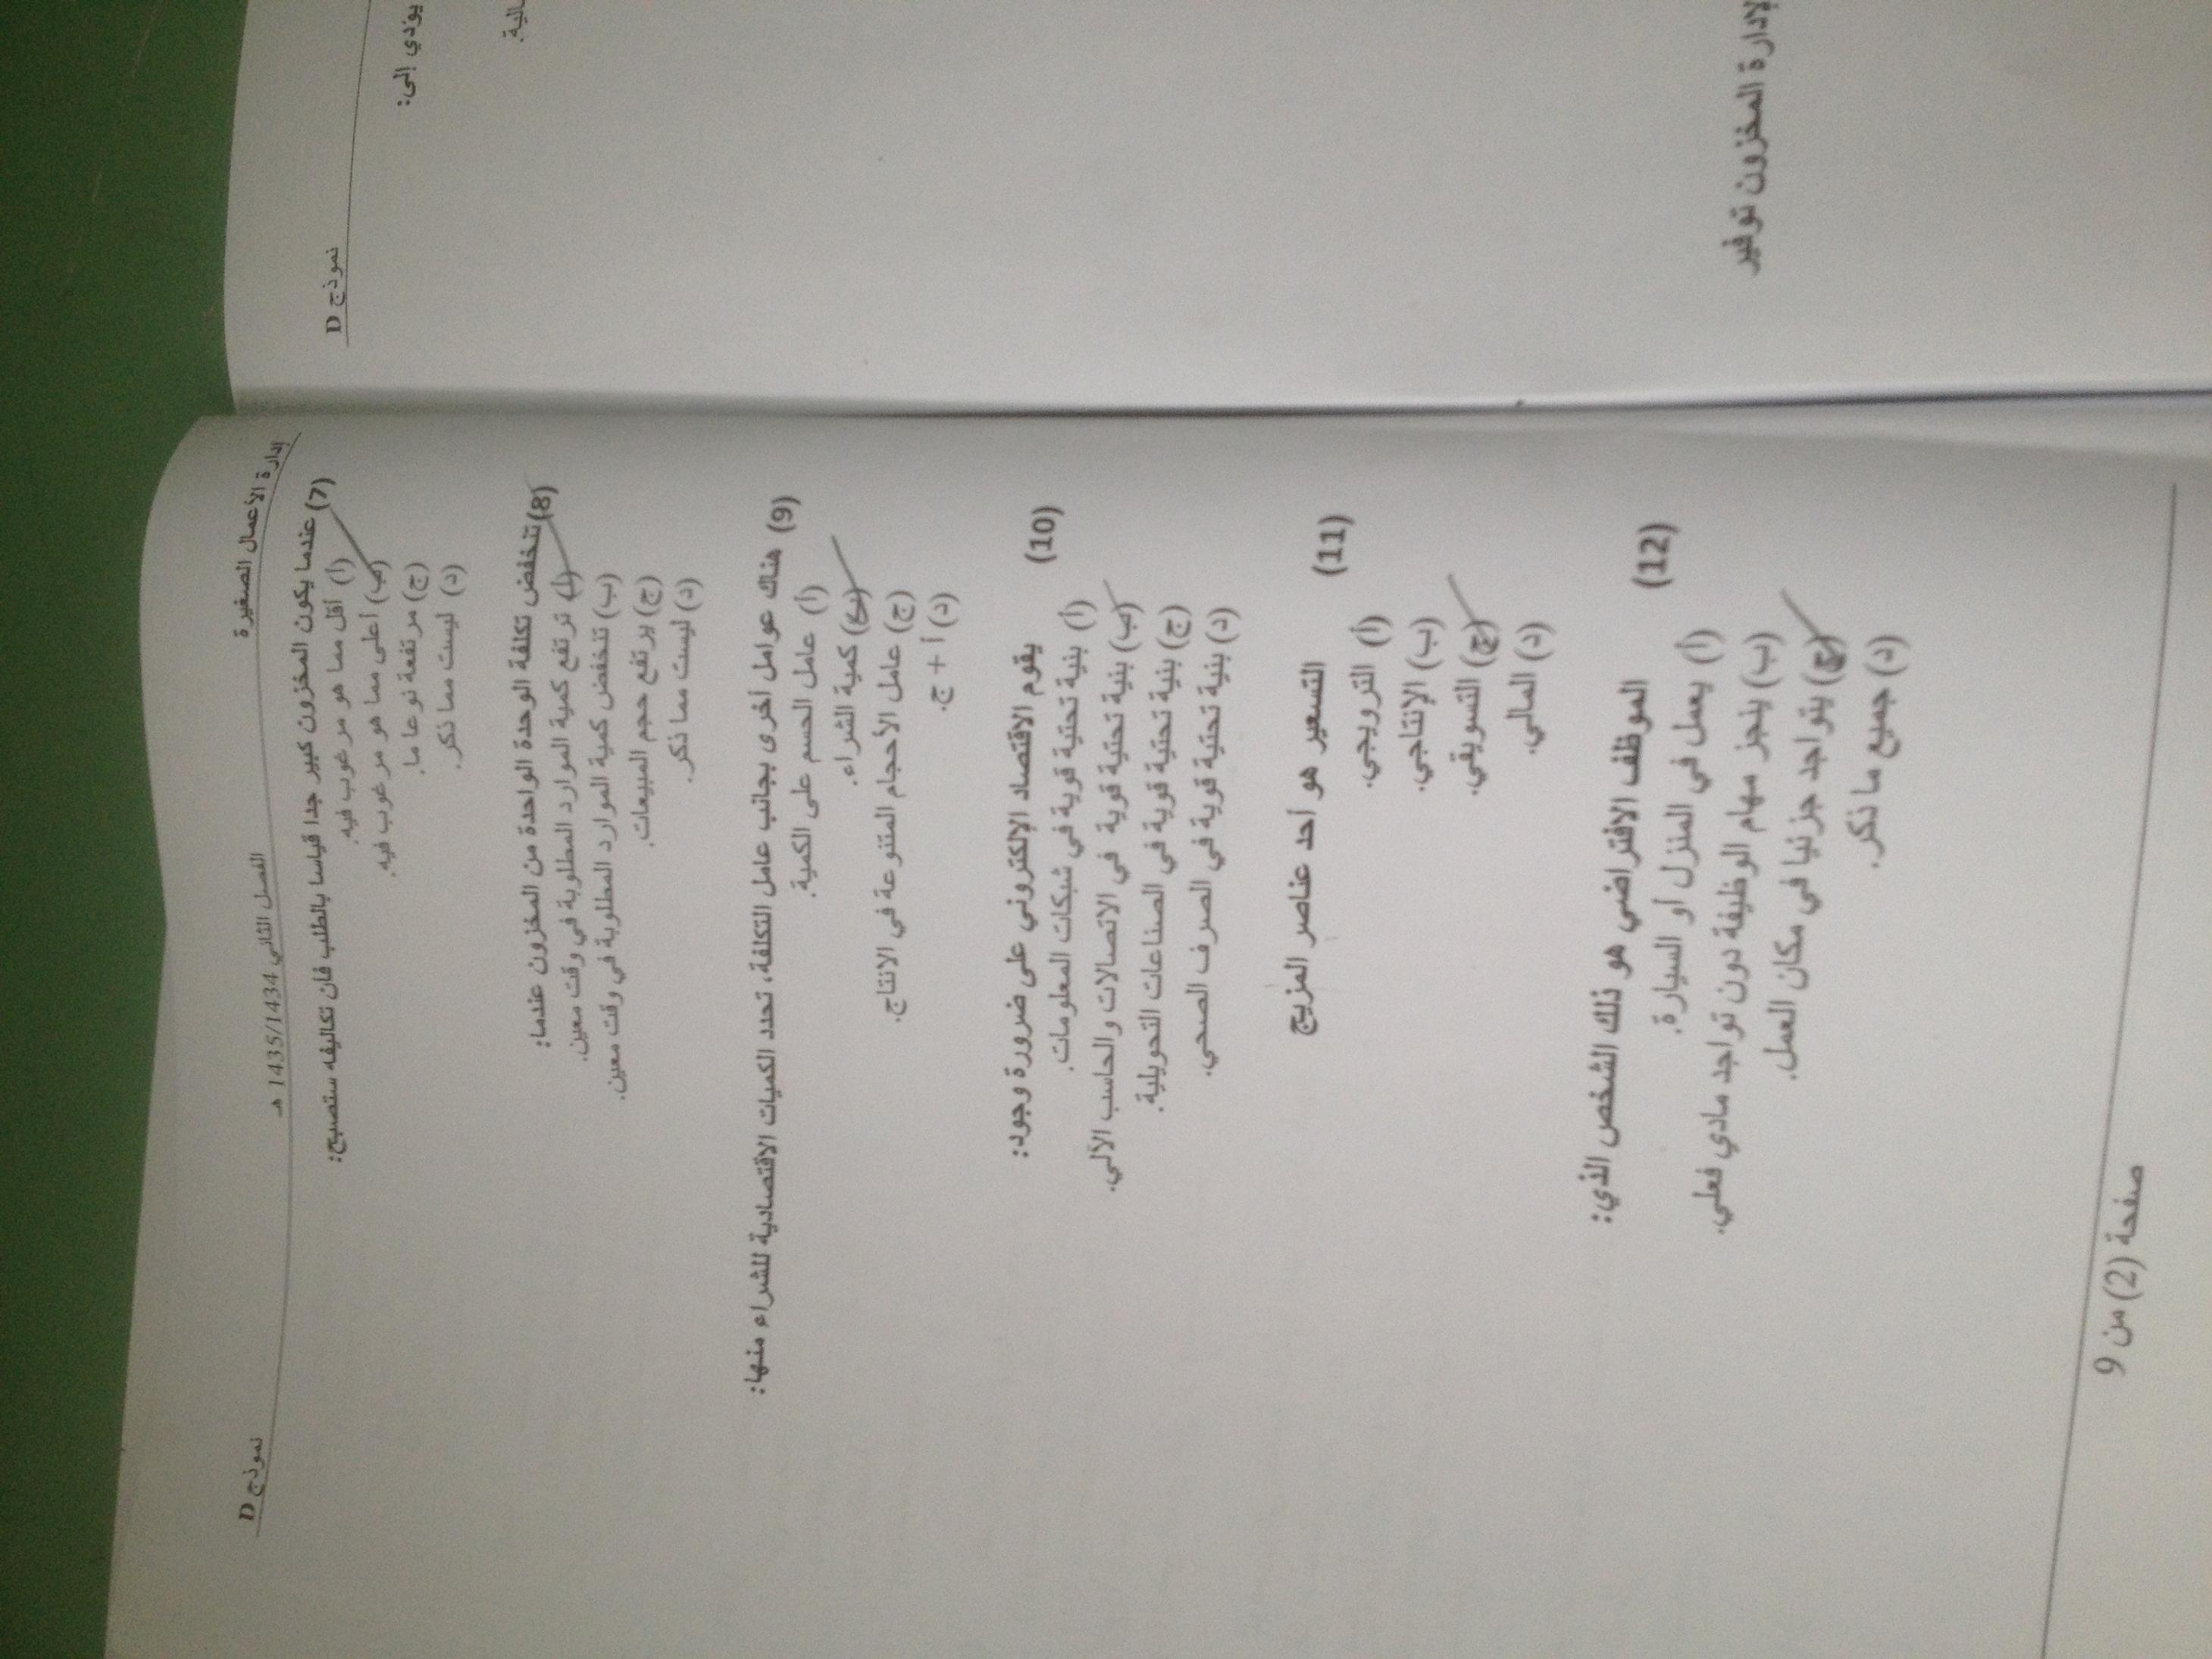 إدارة الأعمال الصغيرة الفصل الثاني 1435/1434 هـ نموذج D
(7) عندما يكون المخزون كبير جدا قياسا بالطلب فان تكاليفه ستصبح:
(أ) أقل مما هو مرغوب فيه.
(ب) أعلى مما هو مرغوب فيه.
(ج) مرتفعة نوعا ما.
(د) ليست مما ذكر.
(8) تنخفض تكلفة الوحدة الواحدة من المخزون عندما:
(أ) ترتفع كمية الموارد المطلوبة في وقت معين.
(ب) تنخفض كمية الموارد المطلوبة في وقت معين.
(ج) يرتفع حجم المبيعات.
(د) ليست مما ذكر.
(9) هناك عوامل أخرى بجانب عامل التكلفة، تحدد الكميات الاقتصادية للشراء منها:
(أ) عامل الحسم على الكمية.
(ب) كمية الشراء.
(ج) عامل الأحجام المتنوعة في الانتاج.
(د) أ + ج.
(10) يقوم الاقتصاد الإلكتروني على ضرورة وجود:
(أ) بنية تحتية قوية في شبكات المعلومات.
(ب) بنية تحتية قوية في الاتصالات والحاسب الألي.
(ج) بنية تحتية قوية في الصناعات التحويلية.
(د) بنية تحتية قوية في الصرف الصحي.
(11) التسعير هو أحد عناصر المزيج
(أ) الترويجي.
(ب) الإنتاجي.
(ج) التسويقي.
(د) المالي.
(12) الموظف الافتراضي هو ذلك الشخص الذي:
(أ) يعمل في المنزل أو السيارة.
(ب) ينجز مهام الوظيفة دون تواجد مادي فعلي.
(ج) يتواجد جزئيا في مكان العمل.
(د) جميع ما ذكر.
صفحة (2) من 9
نموذج D
يؤدي إلى:
لإدارة المخزون توفير